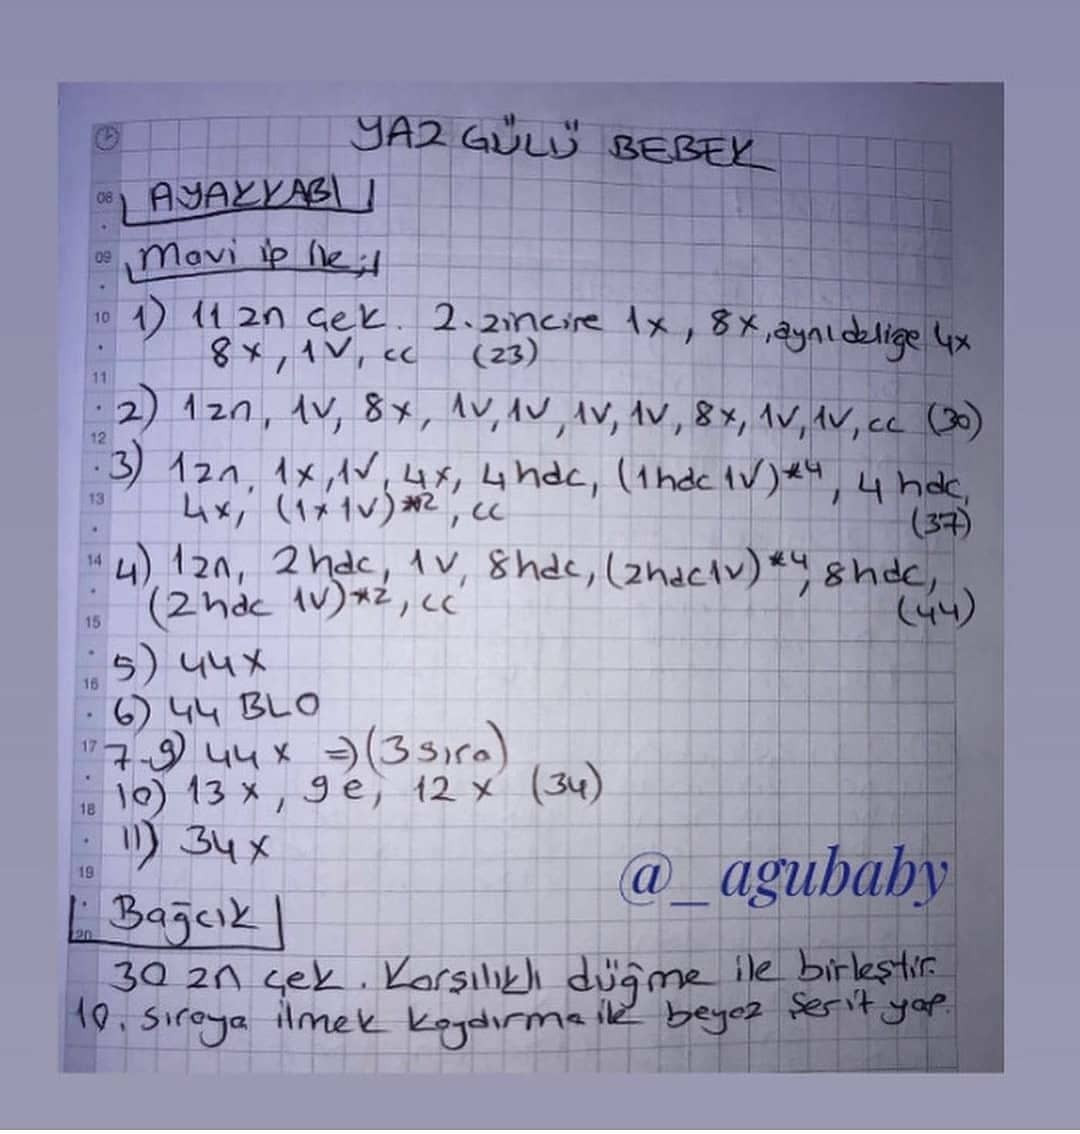 YAZ GÜLÜ BEBEK
08 AYAKKABI
09 Mavi ip ile;
10 1) 11 zn çek. 2. zincire 1x, 8x, aynı deliğe 4x
8x, 1V, cc (23)
11
2) 1zn, 1V, 8x, 1V, 1V, 1V, 1V, 8x, 1V, 1V, cc (30)
12
3) 1zn, 1x, 1V, 4x, 4hdc, (1hdc 1V)*4, 4 hdc,
13 4x, (1x 1V)*2, cc (37)
14 4) 1zn, 2hdc, 1V, 8hdc, (2hdc 1V)*4, 8hdc,
(2hdc 1V)*2, cc (44)
15
5) 44x
16
6) 44 BLO
17 7-9) 44x => (3 sıra)
10) 13x, 9e, 12x (34)
18
11) 34x
19
@_agubaby
Bağcık
20
30 zn çek. Karşılıklı düğme ile birleştir.
10. sıraya ilmek kaydırma ile beyaz şerit yap.